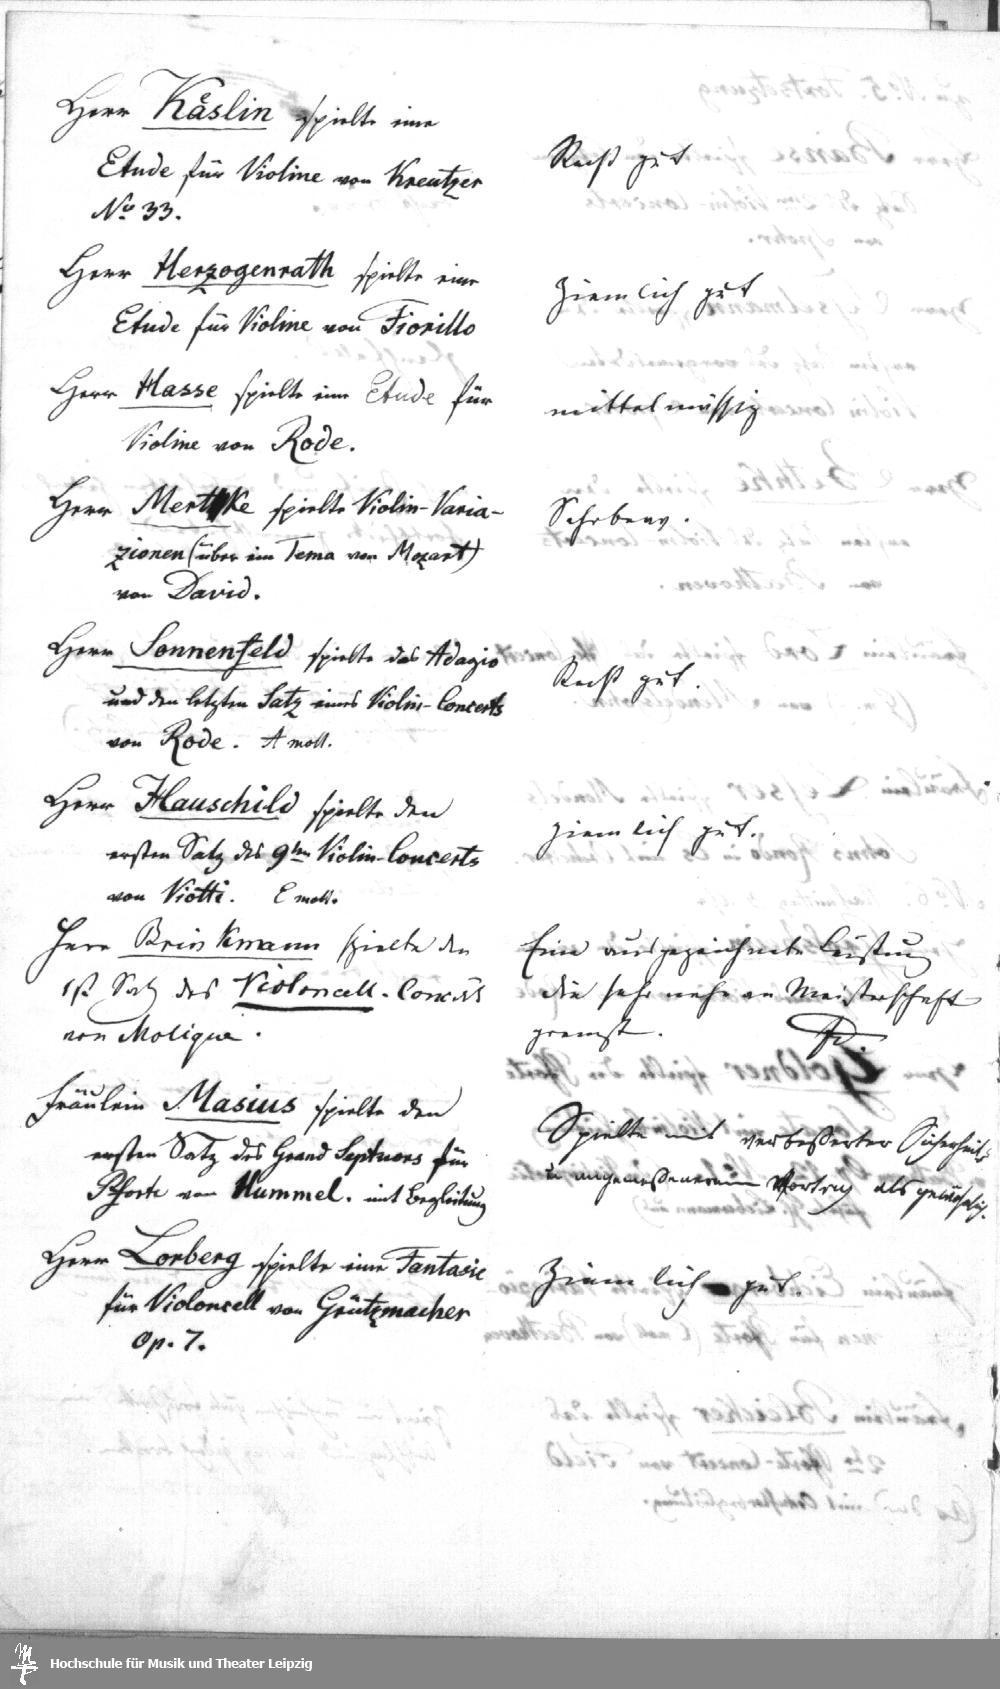 Herr Käslin spielte eine
Etude für Violine von Kreutzer
No 33.
Recht gut
Herr Herzogenrath spielte eine
Etude für Violine von Fiorillo
Ziemlich gut
Herr Hasse spielte eine Etude für
Violine von Rode.
mittelmässig
Herr Mertke spielte Violin-Varia-
zionen (über ein Tema von Mozart)
von David.
Sehr brav.
Herr Sonnenfeld spielte das Adagio
und den letzten Satz eines Violin-Concerts
von Rode. A moll.
Recht gut.
Herr Hauschild spielte den
ersten Satz des 9ten Violin-Concerts
von Viotti. E moll.
ziemlich gut.
Herr Brinkmann spielte den
1st Satz des Violoncell-Concerts
von Molique.
Eine ausgezeichnete Leistung
die sehr nahe an Meisterschaft
grenzt.
Fräulein Masius spielte den
ersten Satz des Grand Septuors für
Pforte von Hummel. mit Begleitung
Spielte mit verbesserter Sicherheit
u angemessenerem Vortrag als gewöhnlich.
Herr Lorberg spielte eine Fantasie
für Violoncell von Grützmacher
Op. 7.
Ziemlich gut.
Hochschule für Musik und Theater Leipzig